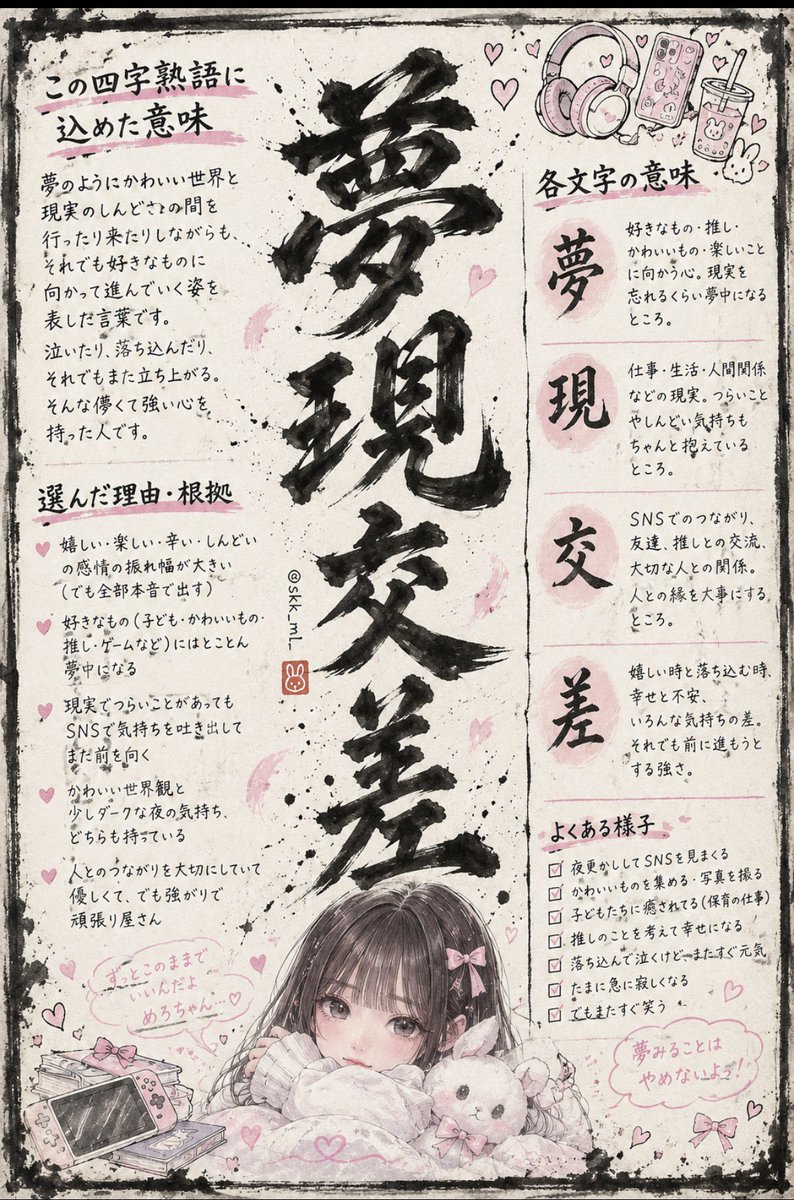 この四字熟語に
込めた意味
夢のようにかわいい世界と
現実のしんどさの間を
行ったり来たりしながらも、
それでも好きなものに
向かって進んでいく姿を
表した言葉です。
泣いたり、落ち込んだり、
それでもまた立ち上がる。
そんな儚くて強い心を
持った人です。
選んだ理由・根拠
嬉しい・楽しい・辛い・しんどい
の感情の振れ幅が大きい
(でも全部本音で出す)
好きなもの(子ども・かわいいもの・
推し・ゲームなど)にはとことん
夢中になる
現実でつらいことがあっても
SNSで気持ちを吐き出して
また前を向く
かわいい世界観と
少しダークな夜の気持ち、
どちらも持っている
人とのつながりを大切にしていて
優しくて、でも強がりで
頑張り屋さん
ずっとこのままで
いいんだよ
めろちゃん…♡
夢
現
交
差
@skk_mL_
各文字の意味
夢
好きなもの・推し・
かわいいもの・楽しいこと
に向かう心。現実を
忘れるくらい夢中になる
ところ。
現
仕事・生活・人間関係
などの現実。つらいこと
やしんどい気持ちも
ちゃんと抱えている
ところ。
交
SNSでのつながり、
友達、推しとの交流、
大切な人との関係。
人との縁を大事にする
ところ。
差
嬉しい時と落ち込む時、
幸せと不安、
いろんな気持ちの差。
それでも前に進もうと
する強さ。
よくある様子
夜更かししてSNSを見まくる
かわいいものを集める・写真を撮る
子どもたちに癒されてる(保育の仕事)
推しのことを考えて幸せになる
落ち込んで泣くけど、またすぐ元気
たまに急に寂しくなる
でもまたすぐ笑う
夢みることは
やめないよっ!